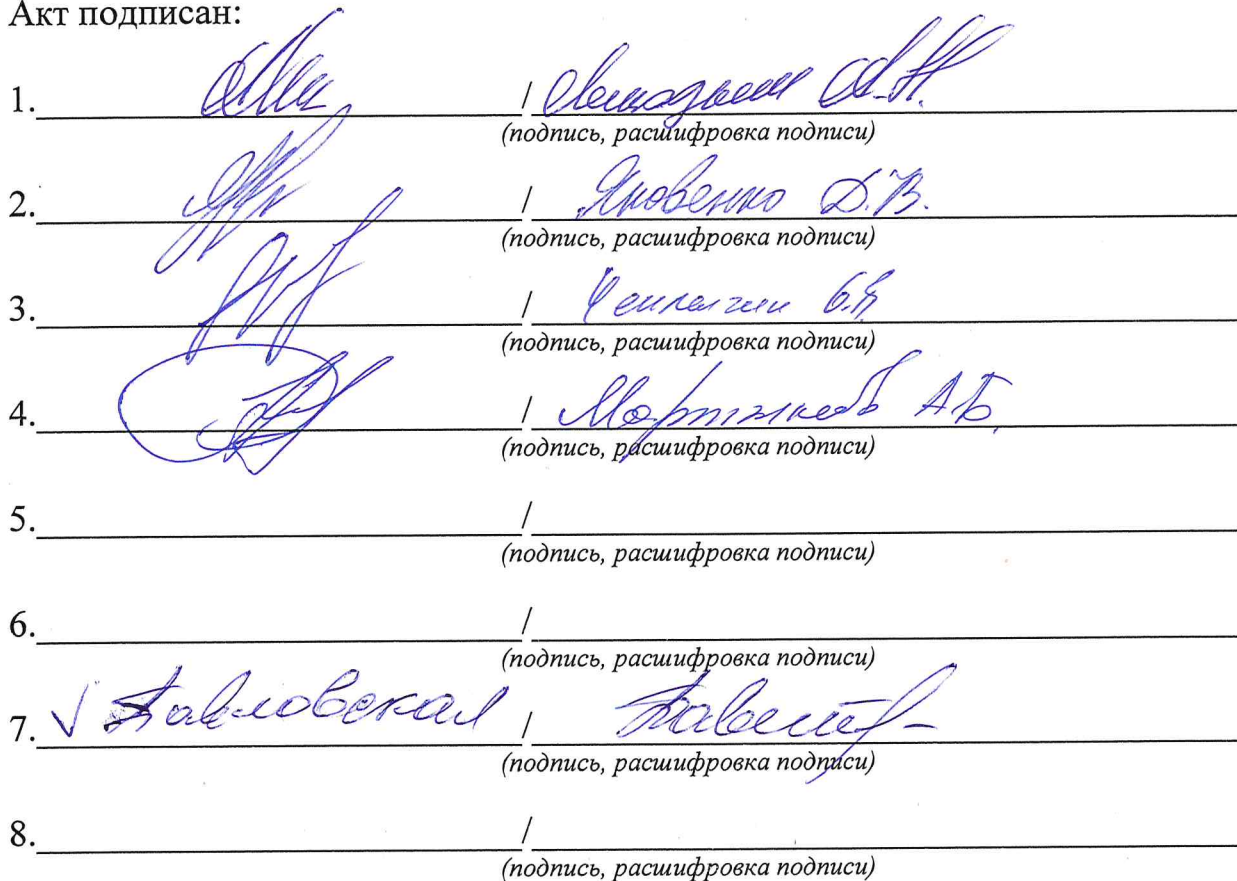 Акт подписан:
1. /
(подпись, расшифровка подписи)
2. / Яковенко Д.В.
(подпись, расшифровка подписи)
3. /
(подпись, расшифровка подписи)
4. / А.Б.
(подпись, расшифровка подписи)
5. /
(подпись, расшифровка подписи)
6. /
(подпись, расшифровка подписи)
7. Павловская /
(подпись, расшифровка подписи)
8. /
(подпись, расшифровка подписи)